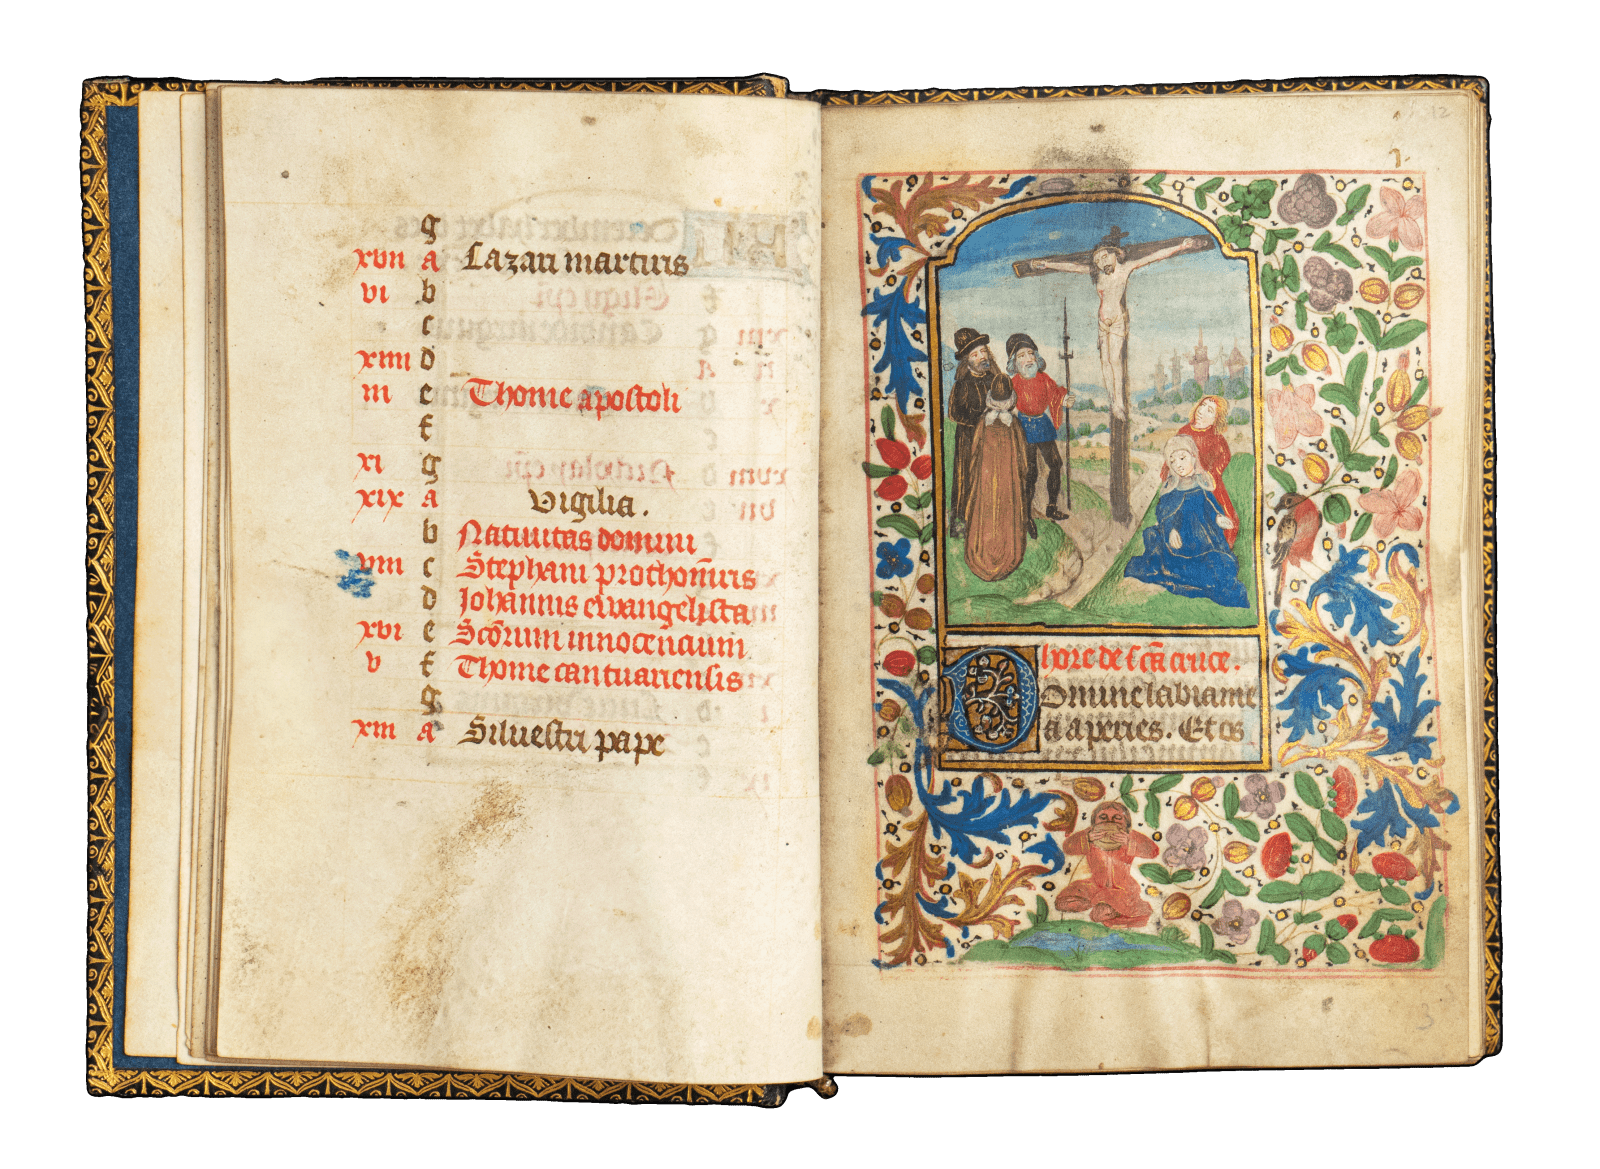 g
xvii a Lazari martiris
vi b
c
xiiii d
iii e Thome apostoli
f
xi g
xix a Vigilia.
b Natiuitas domini
viii c Stephani prothom̄ris
d Johannis ewangelista
xvi e Sc̄orum innocencium
v f Thome cantuariensis
g
xiii a Siluestri pape
12
hore de sc̄a cruce.
Domine labia me
a aperies. Et os
3